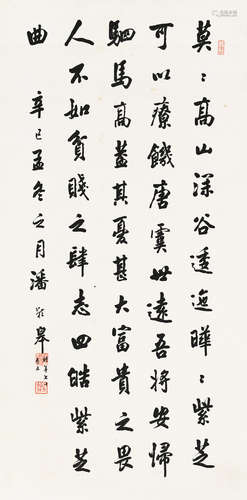 莫〻高山深谷逶迤曄〻紫芝
可以療饑唐虞世遠吾將安歸
駟馬高蓋其憂甚大富貴之畏
人不如貧賤之肆志四皓紫芝
曲 辛巳孟冬之月潘齡皋